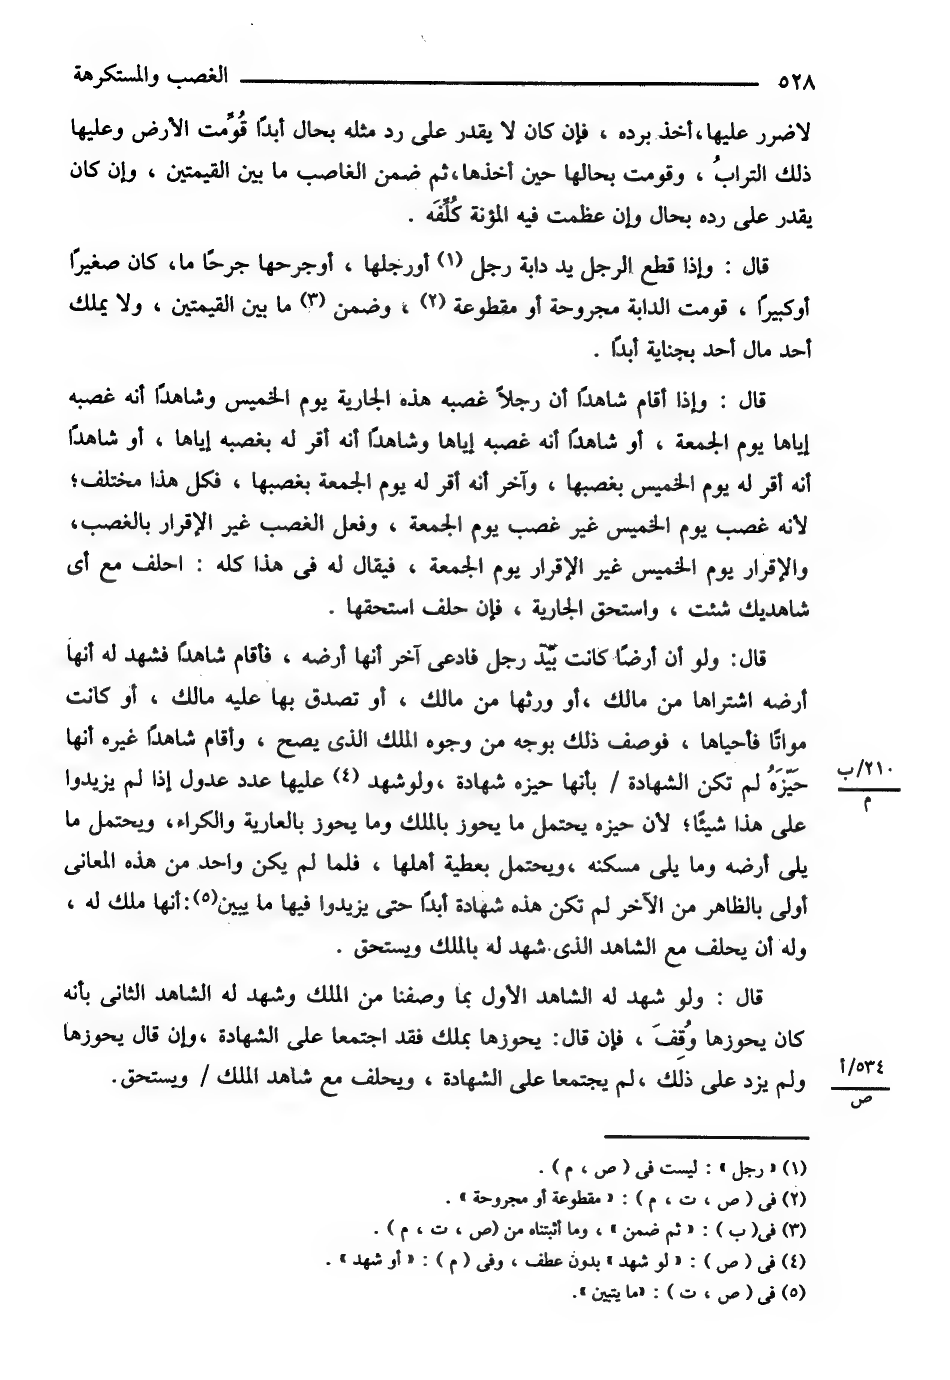 ٥٢٨ الغصب والمستكرهة
لاضرر عليها،أخذ برده ، فإن كان لا يقدر على رد مثله بحال أبدًا قُوِّمت الأرض وعليها
ذلك الترابُ ، وقومت بحالها حين أخذها،ثم ضمن الغاصب ما بين القيمتين ، وإن كان
يقدر على رده بحال وإن عظمت فيه المؤنة كُلِّفَه .
قال : وإذا قطع الرجل يد دابة رجل (١) أورجلها ، أوجرحها جرحًا ما، كان صغيرًا
أوكبيرًا ، قومت الدابة مجروحة أو مقطوعة (٢) ، وضمن (٣) ما بين القيمتين ، ولا يملك
أحد مال أحد بجناية أبدًا .
قال : وإذا أقام شاهدًا أن رجلاً غصبه هذه الجارية يوم الخميس وشاهدًا أنه غصبه
إياها يوم الجمعة ، أو شاهدًا أنه غصبه إياها وشاهدًا أنه أقر له بغصبه إياها ، أو شاهدًا
أنه أقر له يوم الخميس بغصبها ، وآخر أنه أقر له يوم الجمعة بغصبها ، فكل هذا مختلف؛
لأنه غصب يوم الخميس غير غصب يوم الجمعة ، وفعل الغصب غير الإقرار بالغصب،
والإقرار يوم الخميس غير الإقرار يوم الجمعة ، فيقال له فى هذا كله : احلف مع أى
شاهديك شئت ، واستحق الجارية ، فإن حلف استحقها .
قال: ولو أن أرضًا كانت بِيَدِ رجل فادعى آخر أنها أرضه ، فأقام شاهدًا فشهد له أنها
أرضه اشتراها من مالك ،أو ورثها من مالك ، أو تصدق بها عليه مالك ، أو كانت
مواتًا فأحياها ، فوصف ذلك بوجه من وجوه الملك الذى يصح ، وأقام شاهدًا غيره أنها
حَيِّزَهُ لم تكن الشهادة / بأنها حيزه شهادة ،ولوشهد (٤) عليها عدد عدول إذا لم يزيدوا
٢١٠/ب
م
على هذا شيئًا؛ لأن حيزه يحتمل ما يحوز بالملك وما يحوز بالعارية والكراء، ويحتمل ما
يلى أرضه وما يلى مسكنه ،ويحتمل بعطية أهلها ، فلما لم يكن واحد من هذه المعانى
أولى بالظاهر من الآخر لم تكن هذه شهادة أبدًا حتى يزيدوا فيها ما يبين(٥):أنها ملك له ،
وله أن يحلف مع الشاهد الذى شهد له بالملك ويستحق .
قال : ولو شهد له الشاهد الأول بما وصفنا من الملك وشهد له الشاهد الثانى بأنه
كان يحوزها وُقِفَ ، فإن قال: يحوزها بملك فقد اجتمعا على الشهادة ،وإن قال يحوزها
ولم يزد على ذلك ،لم يجتمعا على الشهادة ، ويحلف مع شاهد الملك / ويستحق.
٥٣٤/أ
ص
(١) « رجل » : ليست فى ( ص ، م ) .
(٢) فى ( ص ، ت ، م ) : « مقطوعة أو مجروحة » .
(٣) فى( ب ) : « ثم ضمن » ، وما أثبتناه من (ص ، ت ، م ) .
(٤) فى ( ص ) : « لو شهد » بدون عطف ، وفى ( م ) : « أو شهد » .
(٥) فى ( ص ، ت ) : «ما يتبين ».